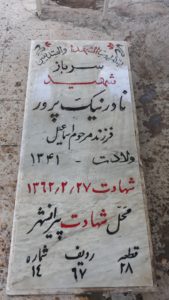 سرباز
شهید
نادر نیک پرور
فرزند مرحوم اسماعیل
ولادت - ۱۳۴۱
شهادت ۱۳۶۲/۲/۲۷
محل شهادت پیرانشهر
قطعه ردیف شماره
۲۸ ۶۷ ۱۴